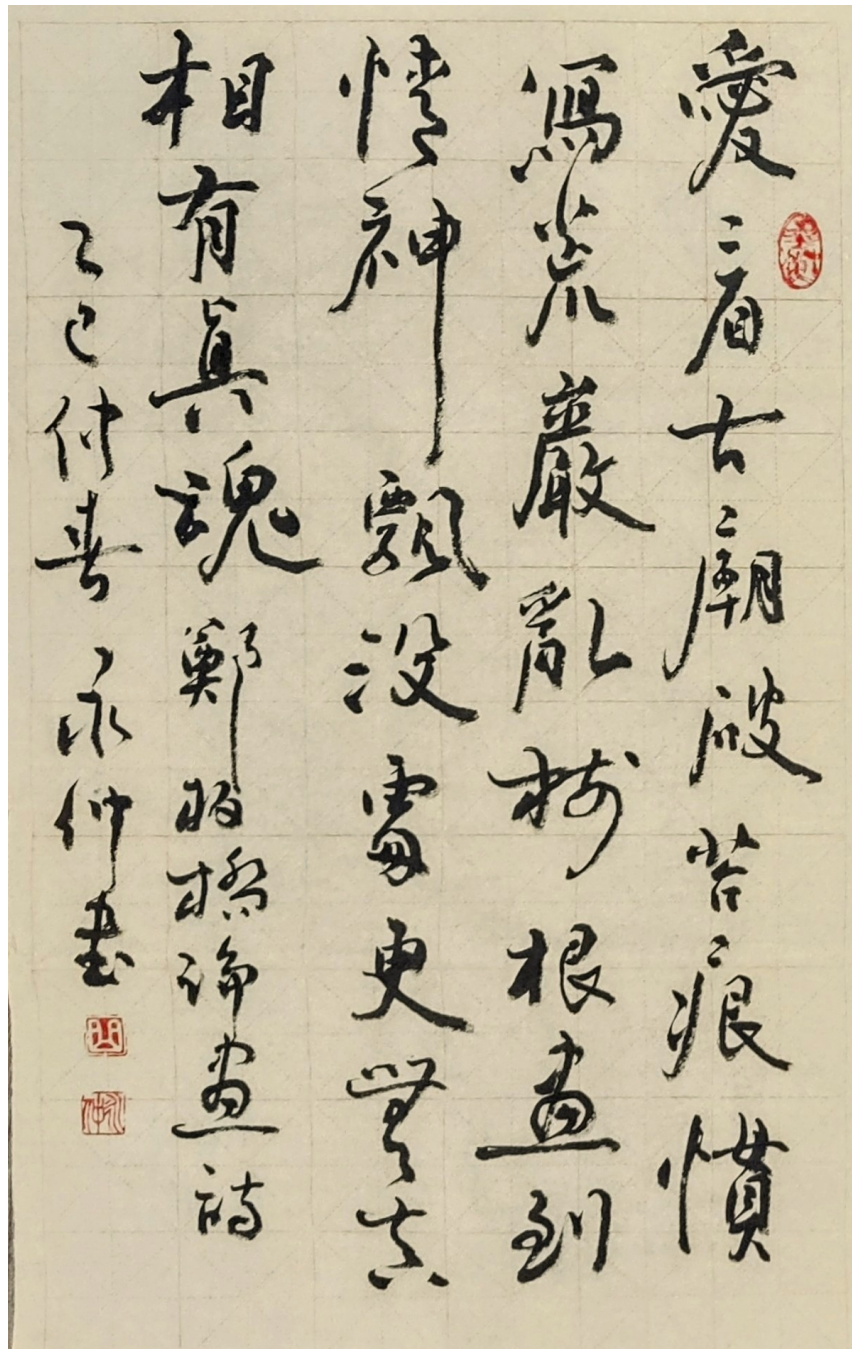 愛看古廟破苔痕慣
寫荒巖亂樹根畫到
情神飄沒處更無真
相有真魂 鄭板橋論畫詩
乙巳仲春 永仲書